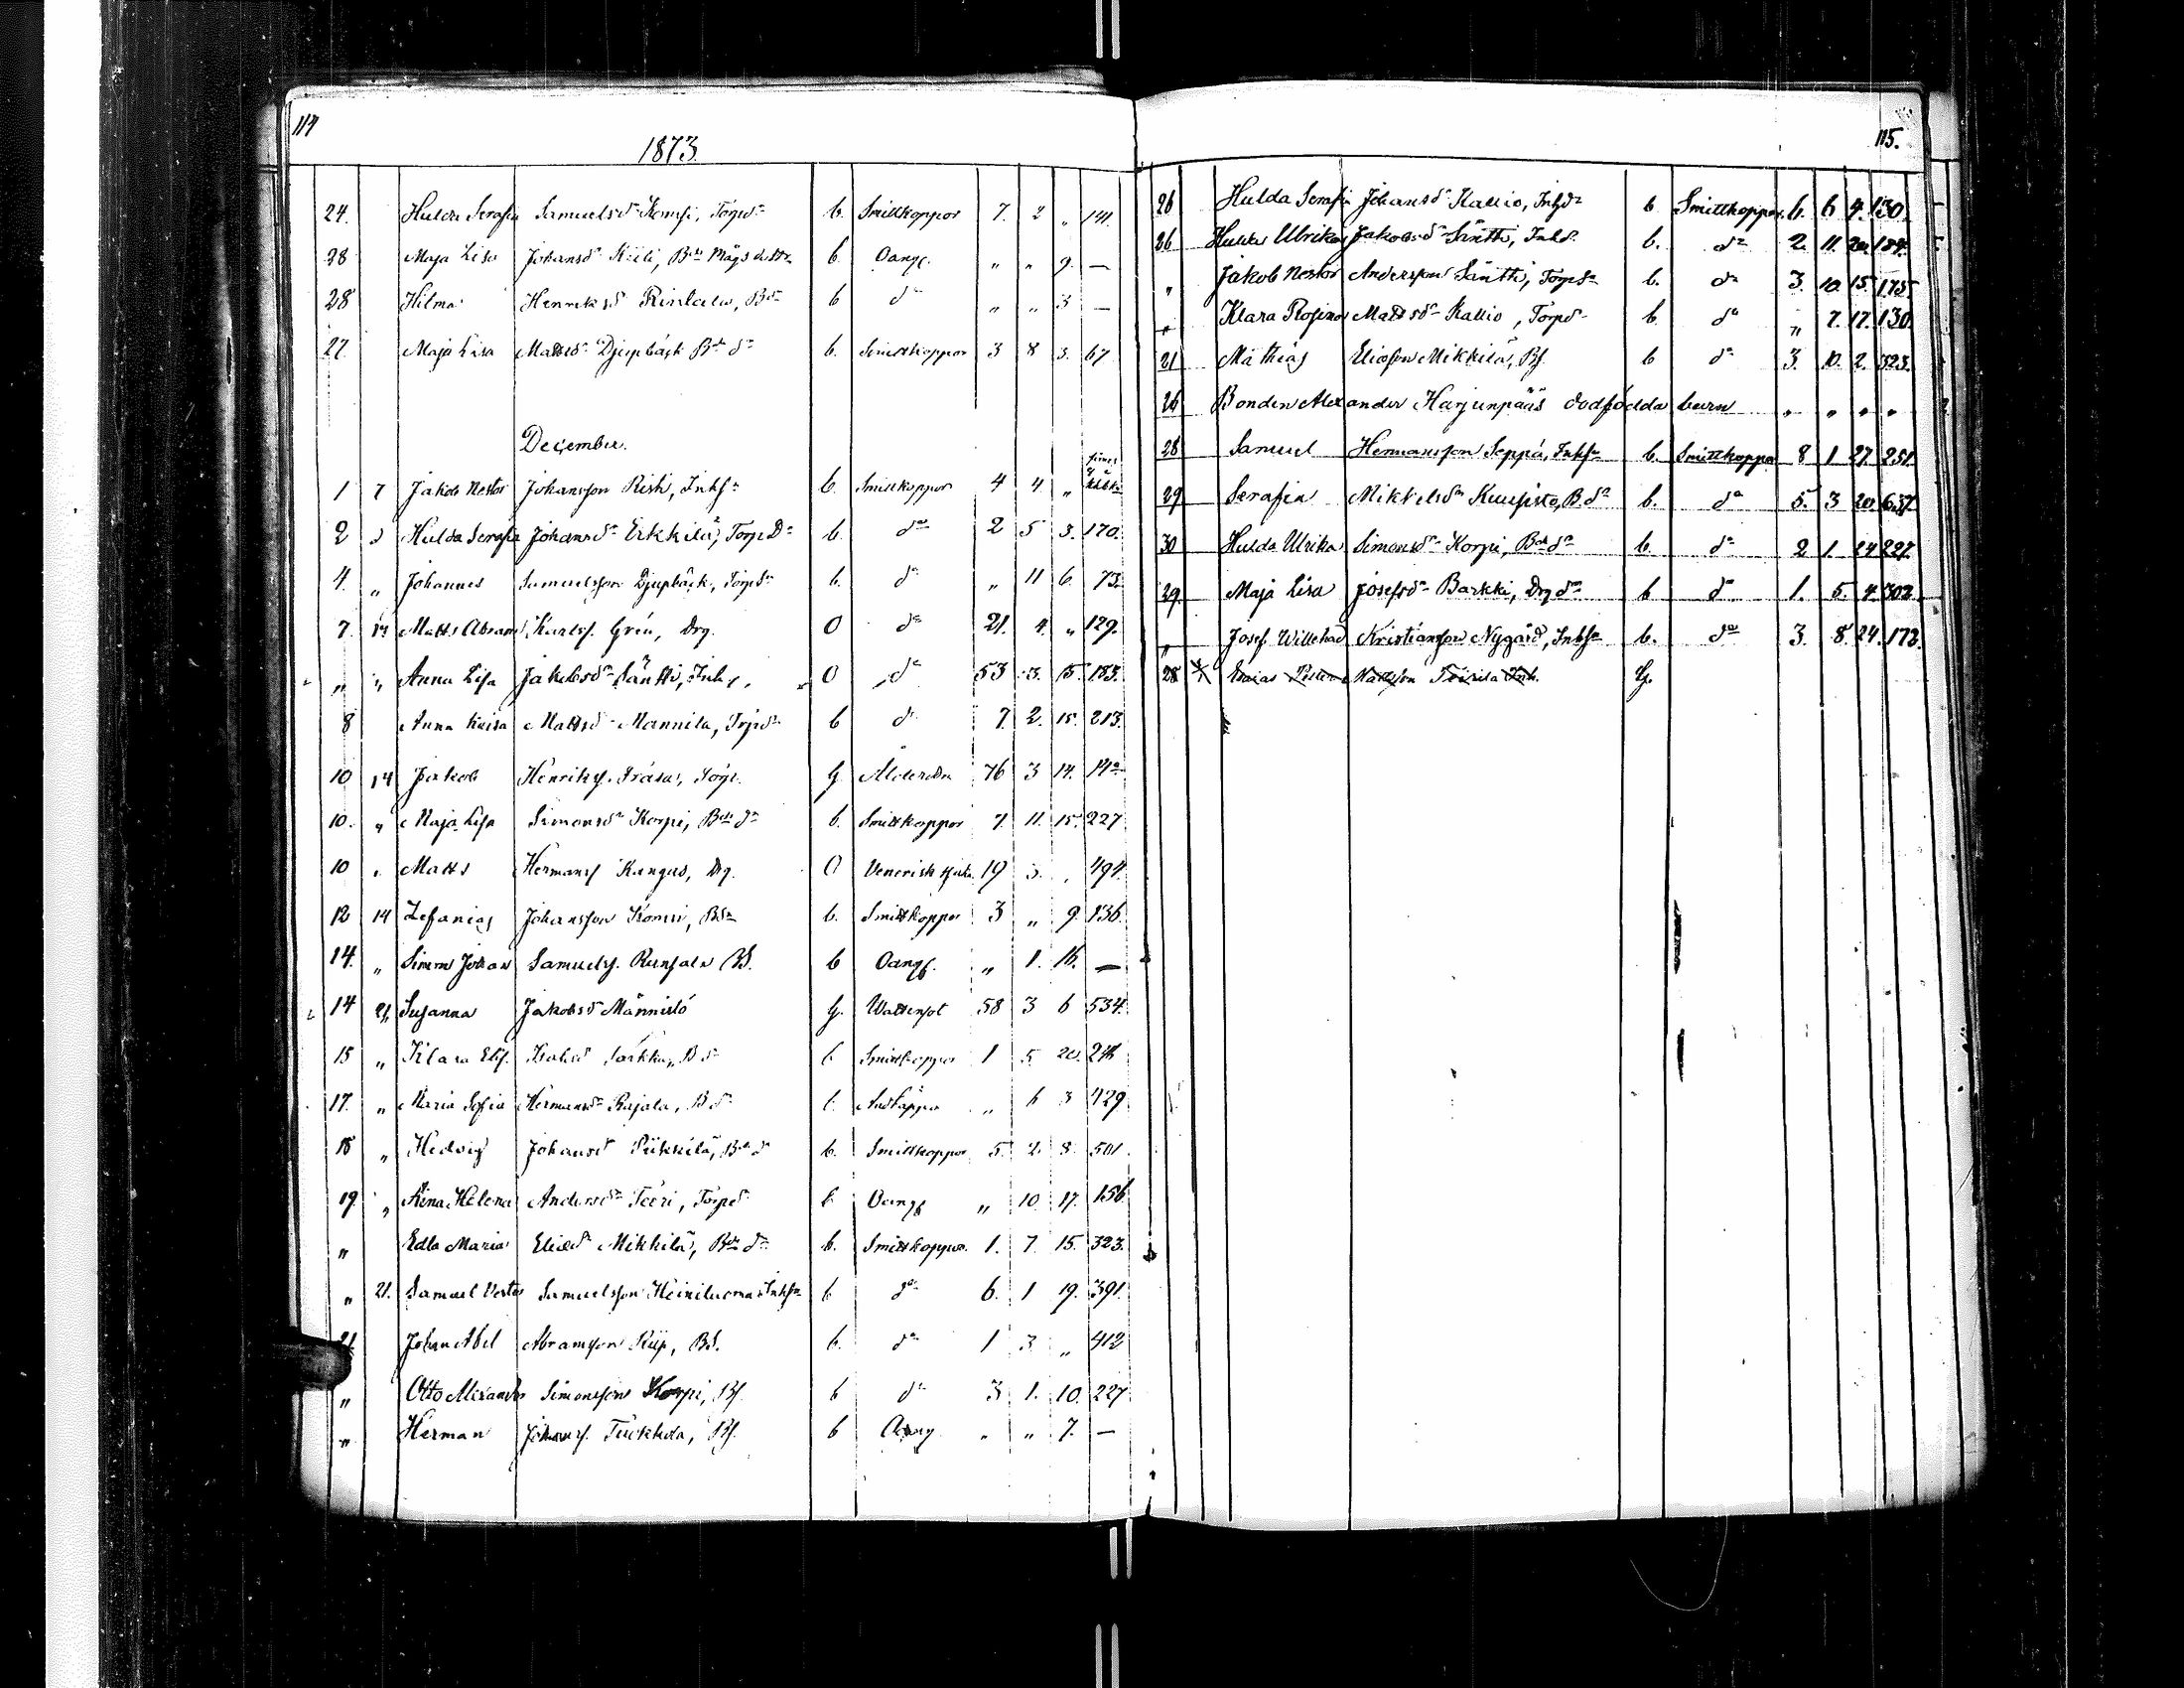 114
1873.
24. Hulda Serafia Samuelsdr Kempi, Torpdr b. Smittkoppor 7. 2 „ 141.
28 Maja Lisa Johansdr Kiili, b. Oangf. „ „ 9. —
28 Hilma Henriksd Rintala, Bdr b do „ „ 3 —
27. Maja Lisa Mattsdr Djupbäck Bdr dr b. Smittkoppor 3 8 3. 67
December.
1 7 Jakob Nestor Johansson Risku, Inhsn b. Smittkoppor 4 4. „
2 „ Hulda Serafia Johansdr Erkkilä, Torp Dr b. do 2 5 3. 170.
4. „ Johannes Samuelsson Djupbäck, Torpsn b. do „ 11 6. 73.
7. 14 Matts Abram Karlsf. Grén, Drg. O do 21. 4. „ 129.
„ „ Anna Lisa Jakobsdr Säntti, Inh. O do 53 3. 15. 183.
8 Anna Kaisa Mattsd Mannila, Trpdr b do 7. 2. 15. 213.
10 14 Jakob Henriksf. Torp. g Ålderdom 76 3 14.
10. „ Maja Lisa Simonsdr Korpi, Bdr dr b. Smittkoppor 7. 11. 15. 227.
10 „ Matts Hermansf Kangas, Drg. O Venerisk 19 3. „ 494.
12 14 Zefanias Johansson Komsi, Bsn b. Smittkoppor 3 „ 9. 136.
14. „ Simon Johan Samuelsf. BS. b Oangf. „ 1. 16. —
14 21 Susanna Jakobsd Männistö g. Wattusot 58 3 6 534.
15 „ Klara Elis. b Smittkoppor 1 5 20.
17. „ Maria Sofia Hermansdr Rajala, B dr b. Andtäppa „ 6 3 429.
18 „ Hedvig Johansd b. Smittkoppor 5. 2. 8. 501.
19. „ Aina Helena Andersdr Teeri, Torpdr b Oangf „ 10. 17. 156.
„ Edla Maria Eliædr Mikkilä, Bdr dr b. Smittkoppor. 1. 7. 15. 323.
„ 21. Samuel Nestor Samuelsson Heiniluoma Inhsn b do 6. 1 19. 391.
21 Johan Abel Abramsson BS. b. do 1 3 „ 412
„ Otto Alexander Simonsson Korpi, Bf. b do 3. 1. 10. 227.
„ Herman Johansf. Bf. b Oang. „ „ 7. —
115.
26 Hulda Serafia Johansdr Kallio, Inhdr b Smittkoppor 6. 6 4. 130.
26 Hulda Ulrika Jakobsdr Säntti, Inhd. b. do 2. 11. 20. 184.
„ Jakob Nestor Andersson Säntti, Torpsn b. do 3. 10. 15. 175.
„ Klara Rosina Mattsdr Kallio, Torpd b do „ 7. 17. 130.
21 Mathias Eliasson Mikkilä, Bf. b do 3. 10. 2. 323.
26 Bonden Alexander Harjunpääs dödfödda barn „ „ „ „
28 Samuel Hermansson Seppä, Inhsn b. Smittkoppor 8 1 27. 251.
29 Serafia Mikkelsdr Kuupisto, B. dr b. do 5. 3 20. 637.
30 Hulda Ulrika Simonsdr Korpi, Bdr dr b. do 2 1. 24 227.
29. Maja Lisa Josefsdr Barkki, Drg dr b do 1. 5. 4. 302.
„ Josef Willehad Kristiansson Nygård, Inhsn b. do 3. 8. 24. 172.
28 Esaias Mattsson Inh. g.